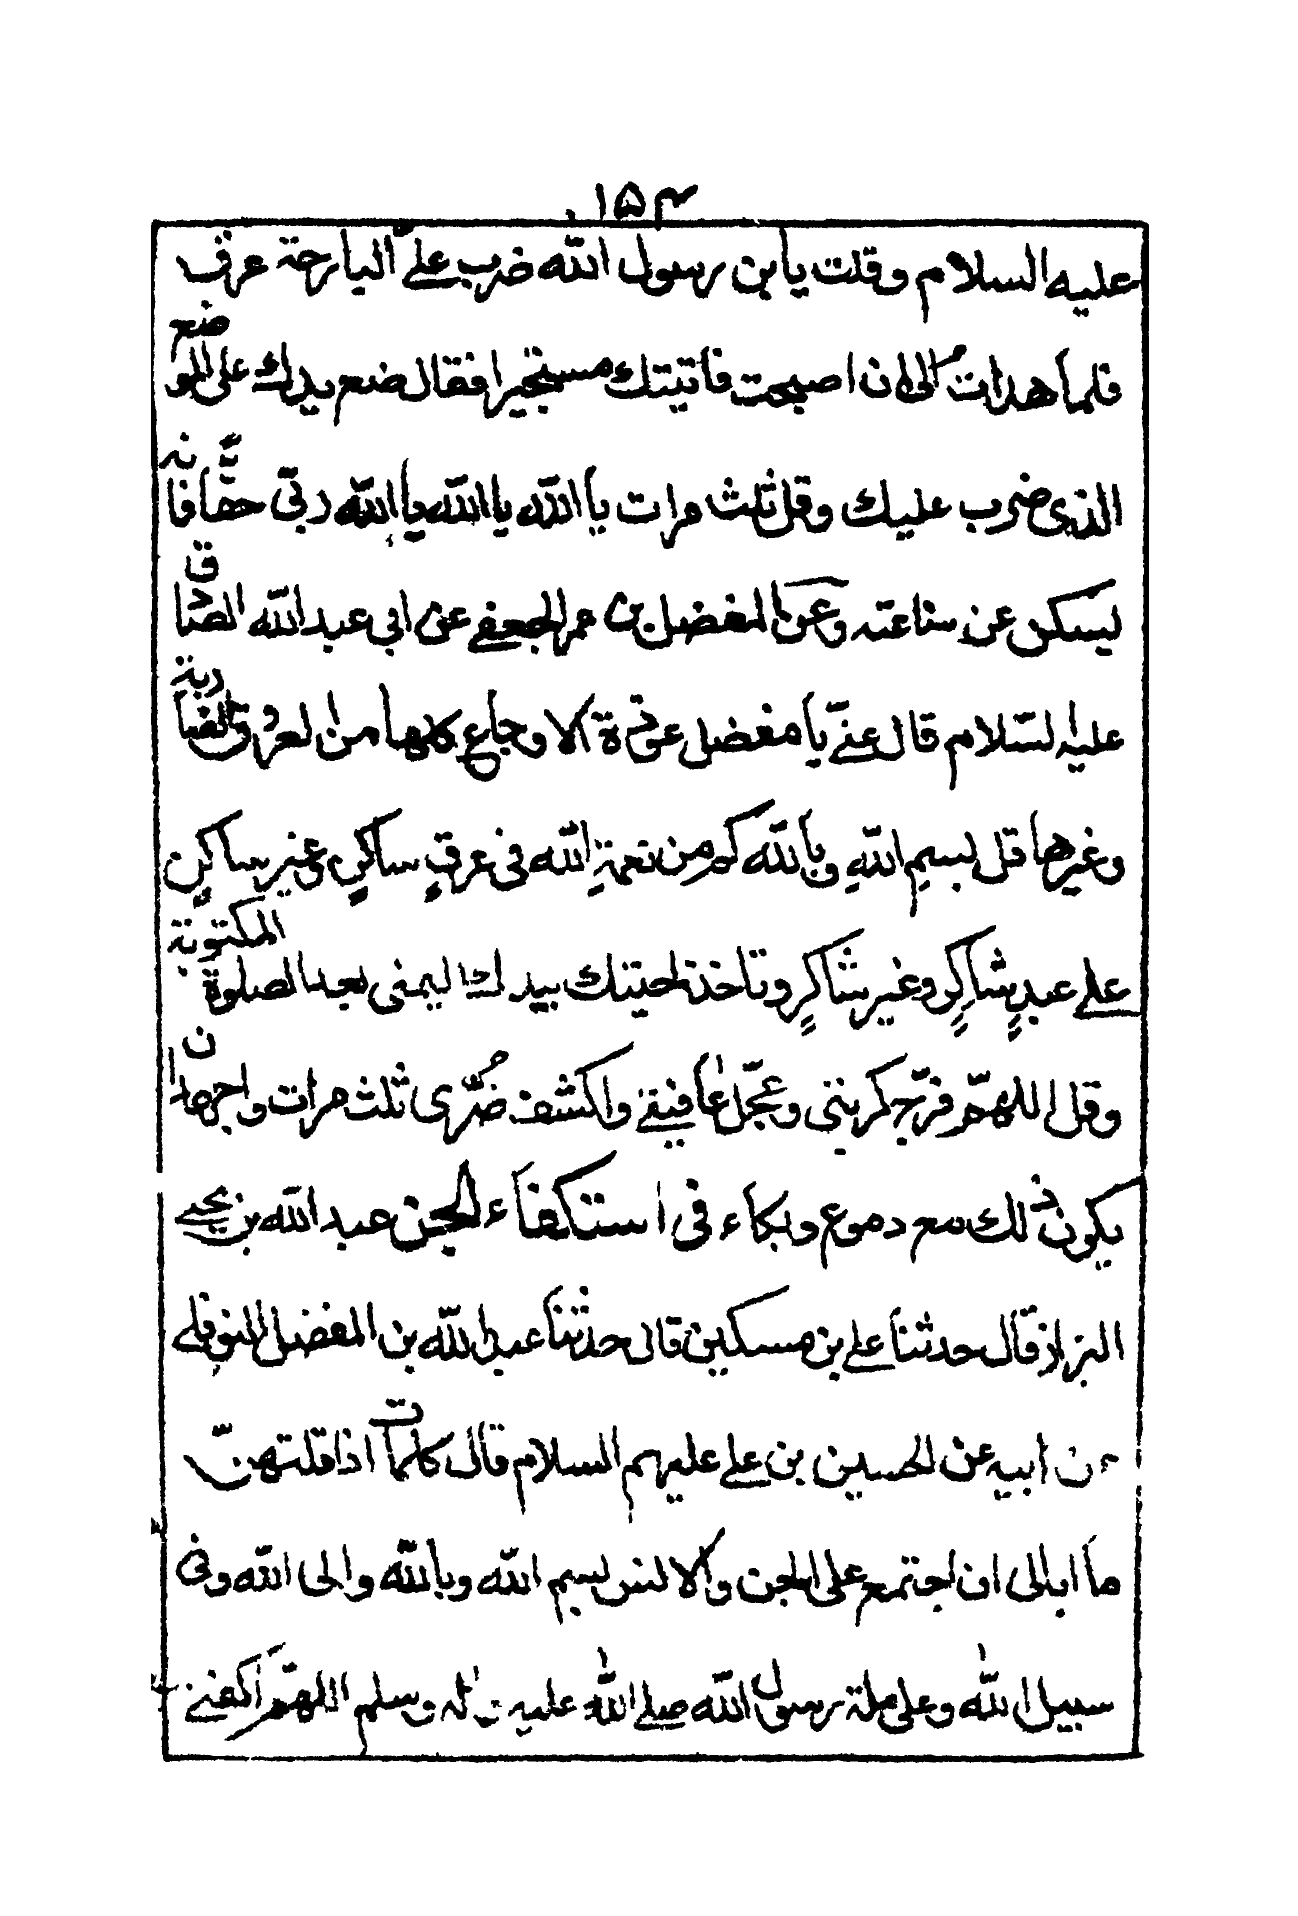 ۱۵۴
عليه السلام وقلت يابن رسول الله ضرب علىّ البارحة عرق
فلما هدات الى ان اصبحت فاتيتك مستجيرا فقال ضع يدك على الموضع
الذى ضرب عليك وقل ثلث مرات يا الله يا الله يا الله ربّى حقّا فانه
ليسكن عن ساعته وعن المفضل بن عمر الجعفى عن ابى عبد الله الصادق
عليه السّلام قال عنّى يا مفضل عوذة الاوجاع كلها من العروق الضاربة
وغيرها قل بسمِ اللهِ وبالله كم من نعمةِ الله فى عرقٍ ساكنٍ وغير ساكنٍ
على عبدٍ شاكرٍ وغير شاكرٍ وتاخذ لحيتك بيدك اليمنى بعد الصلوة المكتوبة
وقل اللهمّ فرّج كربتى وعجّل عافيتى واكشف ضُرّى ثلث مرات واجهد ان
يكون ذلك مع دموع وبكاء فى استكفاء الجن عبد الله بن يحيى
البزاز قال حدثنا على بن مسكين قال حدثنا عبد الله بن المفضل النوفلى
عن ابيه عن الحسين بن على عليهم السلام قال كلمات اذا قلتهنّ
ما ابالى ان اجتمع على الجن والانس بسم الله وبالله والى الله وفى
سبيل الله وعلى ملة رسول الله صلى الله عليه واله وسلم اللهمّ اكفنى